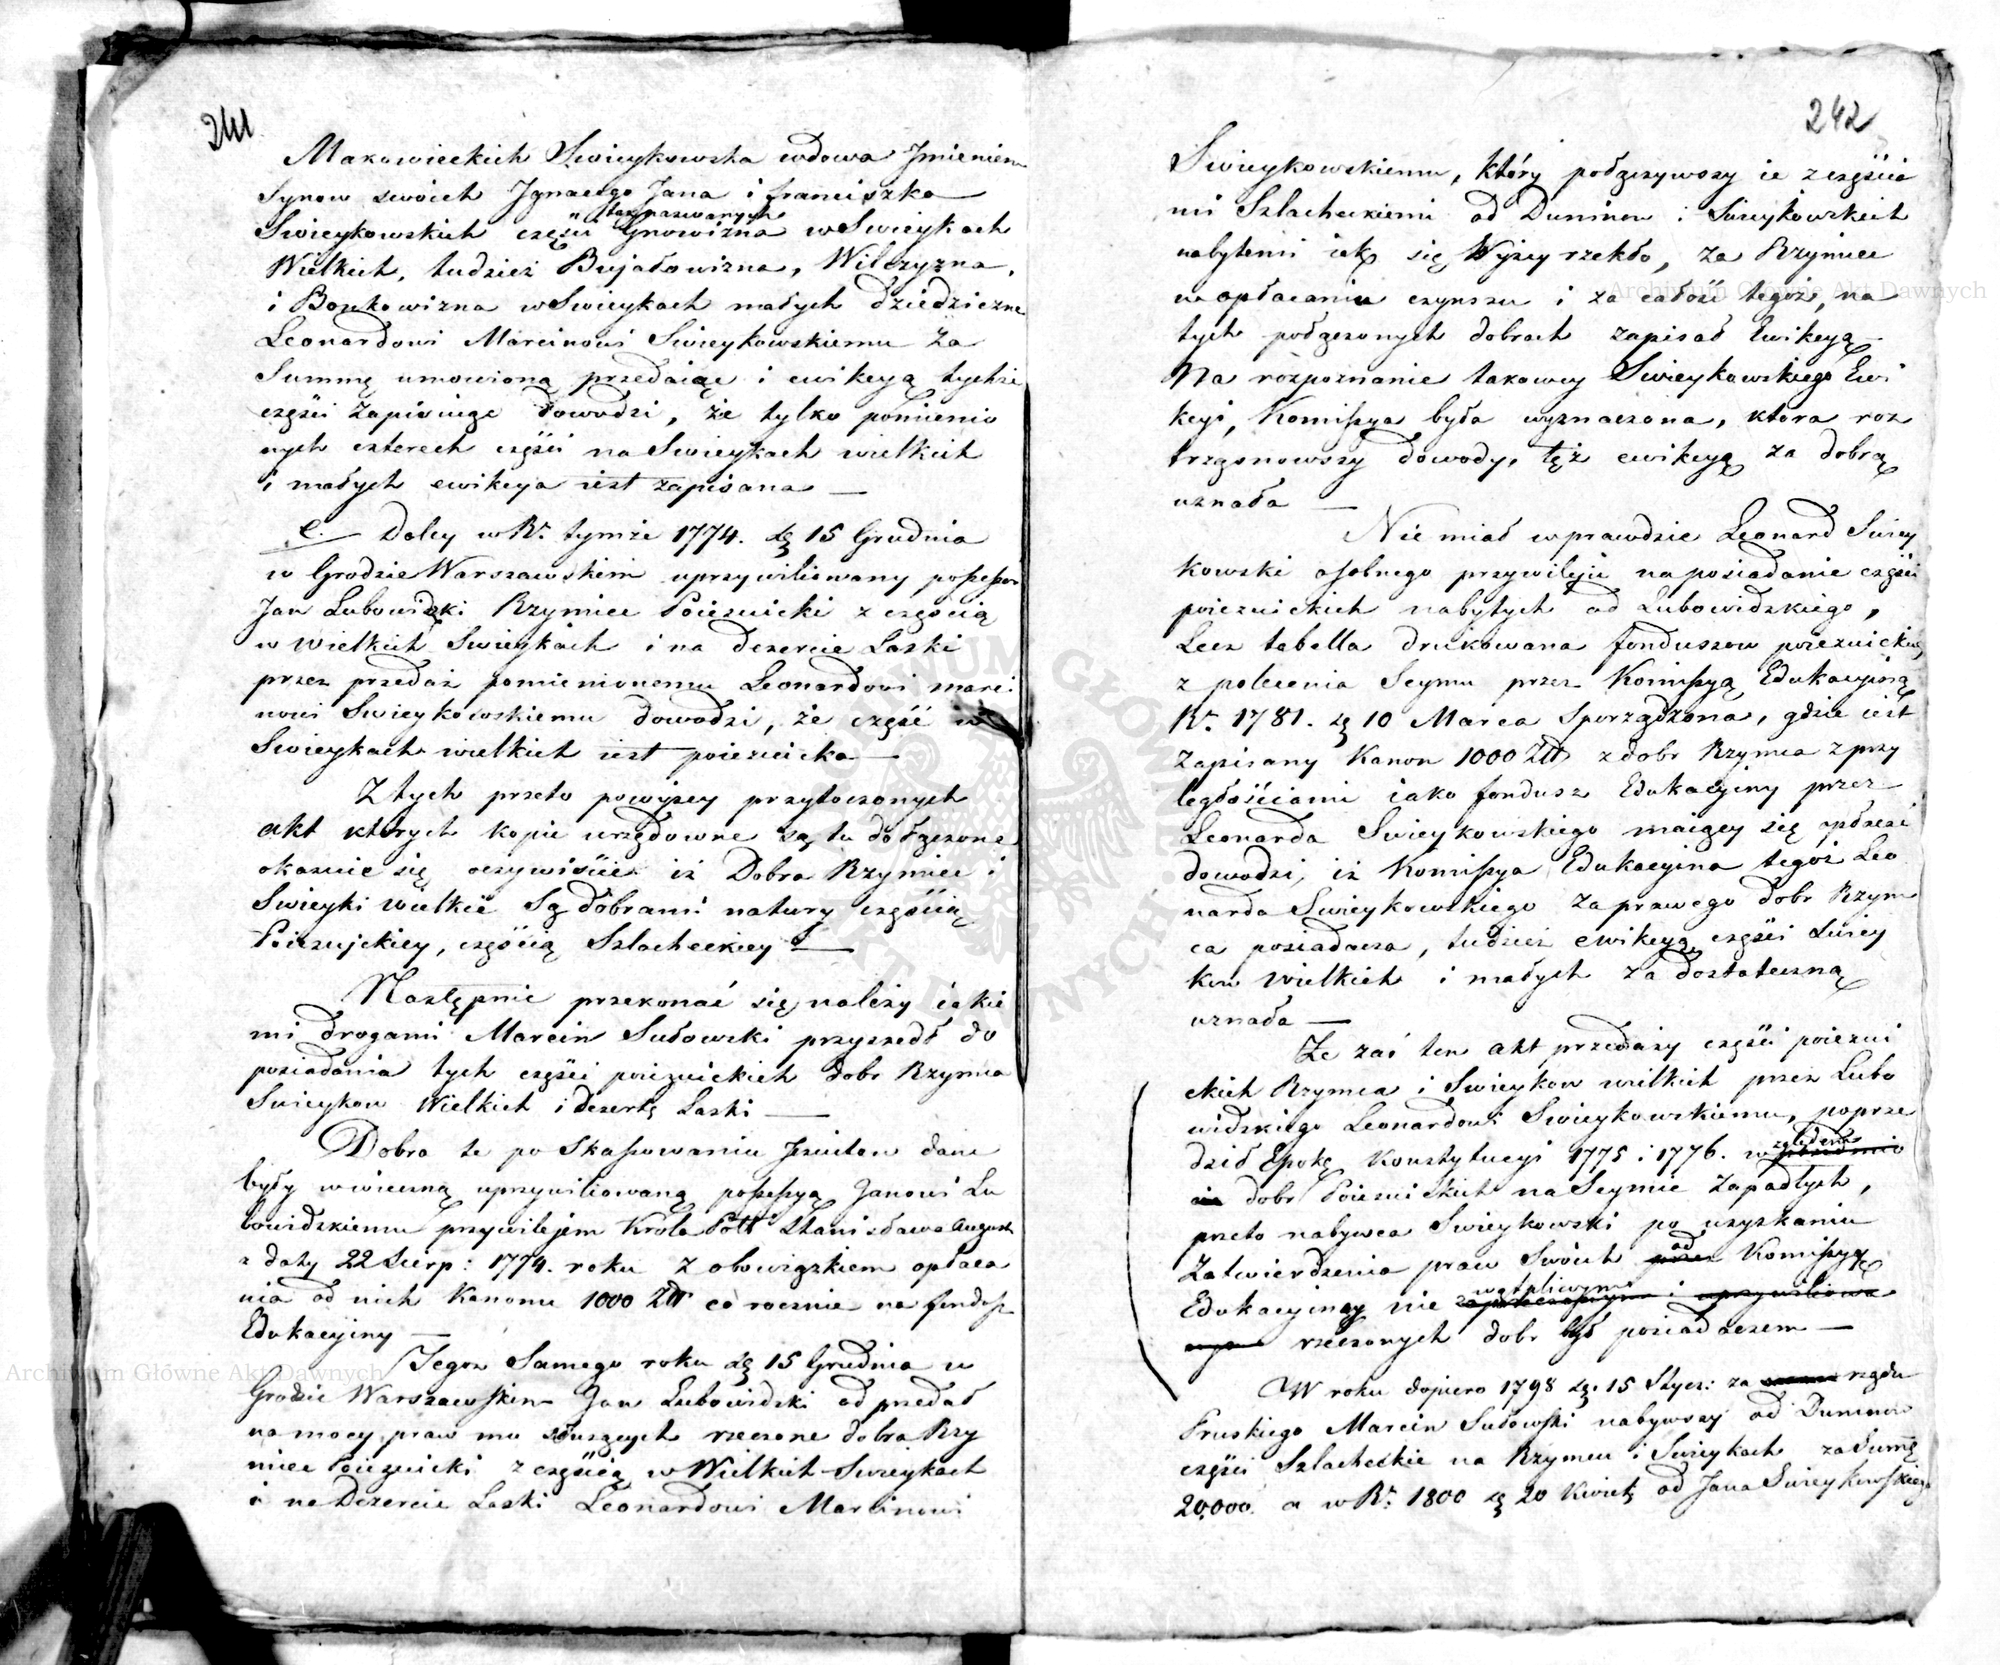 241
Makowieckich Swieykowska wdowa Jmieniem
Synow swoich Jgnacego Jana i franciszka
tak nazwanych
Swieykowskich części Gnowizna w Swieykach
Wielkich, tudzież Bujałowizna, Wilczyzna,
i Boskowizna w Swieykach małych dziedziczne
Leonardowi Marcinowi Swieykowskiemu za
Summę umowioną przedaiąc i ewikcyą tychże
części Zapisuiąc dowodzi, że tylko pomienio
nych czterech części na Swieykach wielkich
i małych ewikcya iest zapisana —
e. — Daley w Rr. tymże 1774. dę 15 Grudnia
w Grodzie Warszawskim uprzywiliowany possessor
Jan Lubowidzki Rzymiec Poiezuicki z częścią
w Wielkich Swieykach i na dezercie Laski
przez przedaż pomienionemu Leonardowi marci
nowi Swieykowskiemu dowodzi, że część w
Swieykach wielkich iest poiezuicka —
Z tych przeto powyżey przytoczonych
akt których kopie urzędowne są tu dołączone
okazuie się oczywiście iż Dobra Rzymiec i
Swieyki wielkie Są dobrami natury częścią
Poiezujckiey, częścią Szlacheckiey —
Następnie przekonać się należy iakie
mi drogami Marcin Sułowski przyszedł do
posiadania tych części poiezuickich dobr Rzymca
Swieykow Wielkich i dezertę Laski —
Dobra te po Skassowaniu Jezuitow dane
były w wieczną uprzywiliowaną possessyą Janowi Lu
bowidzkiemu przywilejem Krola Pol: Stanisława August
z daty 22 Sierp: 1774. roku z obowiązkiem opłaca
nia od nich Kanonu 1000 Złt co rocznie na fundusz
Edukacyiny —
Tegoż Samego roku dę 15 Grudnia w
Grodzie Warszawskim Jan Lubowidzki odprzedał
na mocy praw mu służących rzeczone dobra Rzy
miec Poiezuicki z częścią w Wielkich Swieykach
i na Dezercie Laski Leonardowi Marcinowi
242
Swieykowskiemu, który połączywszy ie z częścia
mi Szlacheckiemi od Duninow i Swieykowskich
nabytemi iak się Wyżey rzekło, za Rzymiec
w opłacaniu czynszu i za całość tegoż, na
tych połączonych dobrach zapisał Ewikcyą
Na rozpoznanie takowey Swieykowskiego Ewi
kcyi, Komissya była wyznaczona, która roz
trząsnowszy dowody, tęż ewikcyą za dobrą
uznała —
Nie miał wprawdzie Leonard Swiey
kowski osobnego przywileju na posiadanie części
poiezuickich nabytych od Lubowidzkiego,
Lecz tabella drukowana funduszow poiezuickich
z polecenia Seymu przez Komissyą Edukacyiną
Rr. 1781. dę 10 Marca Sporządzona, gdzie iest
Zapisany Kanon 1000 Złt z dobr Rzymca z przy
ległościami iako fundusz Edukacyiny przez
Leonarda Swieykowskiego maiącey się opłacać
dowodzi, iż Komissya Edukacyina tegoż Leo
narda Swieykowskiego za prawego dobr Rzym
ca posiadacza, tudzież ewikcyą części Swiey
kow Wielkich i małych za dostateczną
uznała —
Że zaś ten akt przedaży części poiezui
ckich Rzymca i Swieykow wielkich przez Lubo
widzkiego Leonardowi Swieykowskiemu, poprze
dził Epokę Konstytucyi 1775 i 1776. względem
dobr Poiezuickich na Seymie Zapadłych,
przeto nabywca Swieykowski po uzyskaniu
Zatwierdzenia praw Swoich od Komissyą
Edukacyiney nie wątpliwym
rzeczonych dobr był posiadaczem —
W roku dopiero 1798 dę. 15 Stycz: za rządu
Pruskiego Marcin Sułowski nabywszy od Duninow
części Szlacheckie na Rzymcu i Swieykach za Sumę
20,000. a w Rr. 1800 dę 20 Kwiet. od Jana Swieykowskiego
Archiwum Główne Akt Dawnych
Archiwum Główne Akt Dawnych
ARCHIWUM GŁÓWNE AKT DAWNYCH